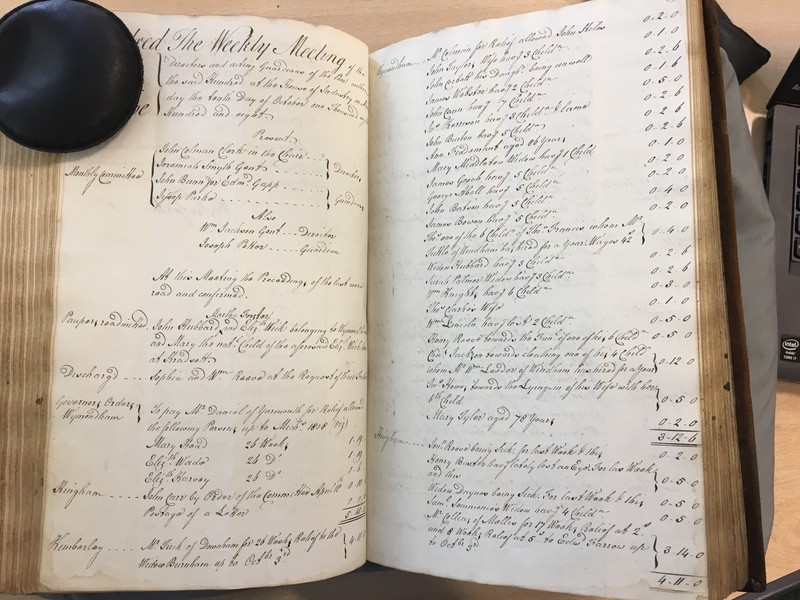 The Weekly Meeting of the
Directors and acting Guardians of the Poor within
the said Hundred at the House of Industry on
day the tenth Day of October one Thousand
Hundred and eight.
Present
Monthly Committee
John Colman Clerk in the Chair
Jeremiah Smyth Gent
John Bunn for Edmd. Gapp
Jesop Parke
Director
Guardians
Also
Wm. Jackson Gent Director
Joseph Petter Guardian
At this Meeting the Proceedings of the last were
read and confirmed.
Paupers readmitted. Martha Frostor
John Hubbard and Elizth. Week belonging to
and Mary the natl. Child of the aforesaid Elizth. Week
at Stradsett
Discharged Sophia and Wm. Reeve at the Request of
Governors Orders Wymondham
To pay Mr. Daniel of Yarmouth for Relief allowed
the following Persons up to Michs. 1808
Mary Head 26 Weeks
Elizth. Wade 26 Do.
Elizth. Harvey 26 Do.
Hingham John Carr by Order of the Committee April
Postage of a Letter
Kimberley Mr. Tuck of Deepham for 26 Weeks Relief to the
Widow Burnham up to Octbr. 3rd
Wymondham Mr. Colman for Relief allowed John Stiles 0-2-0
John Taylor Wife havg 3 Childn. 0-1-0
John Corbett his Daughr. being unwell 0-2-6
James Webster havg 2 Childn. 0-1-6
John Cann havg 7 Childn. 0-5-0
Jas. Harrison havg 3 Childn. & lame 0-2-6
John Burton havg 5 Childn. 0-2-6
Ann Tradamant aged 26 Years 0-2-6
Mary Middleton Widow havg 1 Child 0-1-0
James Gooch havg 5 Childn. 0-2-0
George Aboll havg 5 Childn. 0-2-0
John Batson havg 5 Childn. 0-4-0
James Bowen havg 5 Childn. 0-2-0
Thos. one of the 6 Childn. of Thos. Francis whom Mr.
Tuttle of Windham has hired for a Year Wages 42s 0-4-0
Widow Hubbard havg 3 Childn. 0-2-6
Sarah Palmer Widow havg 3 Childn. 0-2-6
Wm. Knights havg 6 Childn. 0-3-0
Thos. Clarke's Wife 0-1-0
Wm. Lincoln havg lost 2 Childn. 0-5-0
Henry Reeve towards the Fun. of one of hes 6 Childn. 0-5-0
Chas. Jackson towards cloathing one of hes 4 Childn.
whom Mr. Wm. Lodder of Windham has hired for a Year 0-12-0
Jas. Howes towards the Lying-in of his Wife with her
6th Child 0-5-0
Mary Tyler aged 78 Years 0-2-0
3-12-6
Hingham Jas. Reeve being Sick for last Week & this 0-2-0
Henry Baxter havg lately lost an Eye. For last Week
and this 0-5-0
Widow Daynes being Sick. For last Week & this 0-5-0
Saml. Simmonss Widow havg 4 Childn. 0-5-0
Mr. Collins of Mattis for 17 Weeks Relief at 2s
and 8 Weeks Relief at 5s to Edwd. Farrow up
to Octbr. 3rd 3-14-0
4-11-0
intel